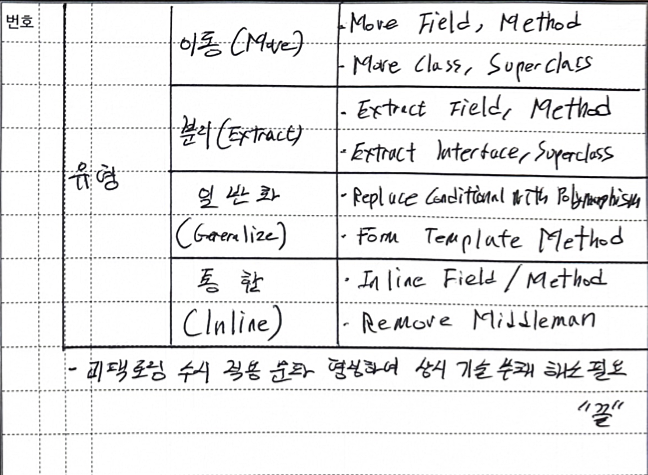 번호
유형
이동 (Move)
- Move Field, Method
- Move Class, Superclass
분리 (Extract)
- Extract Field, Method
- Extract Interface, Superclass
일반화
(Generalize)
- Replace Conditional with Polymorphism
- Form Template Method
통합
(Inline)
- Inline Field / Method
- Remove Middleman
- 리팩토링 수시 적용 문화 형성하여 상시 기술 부채 해소 필요
"끝"